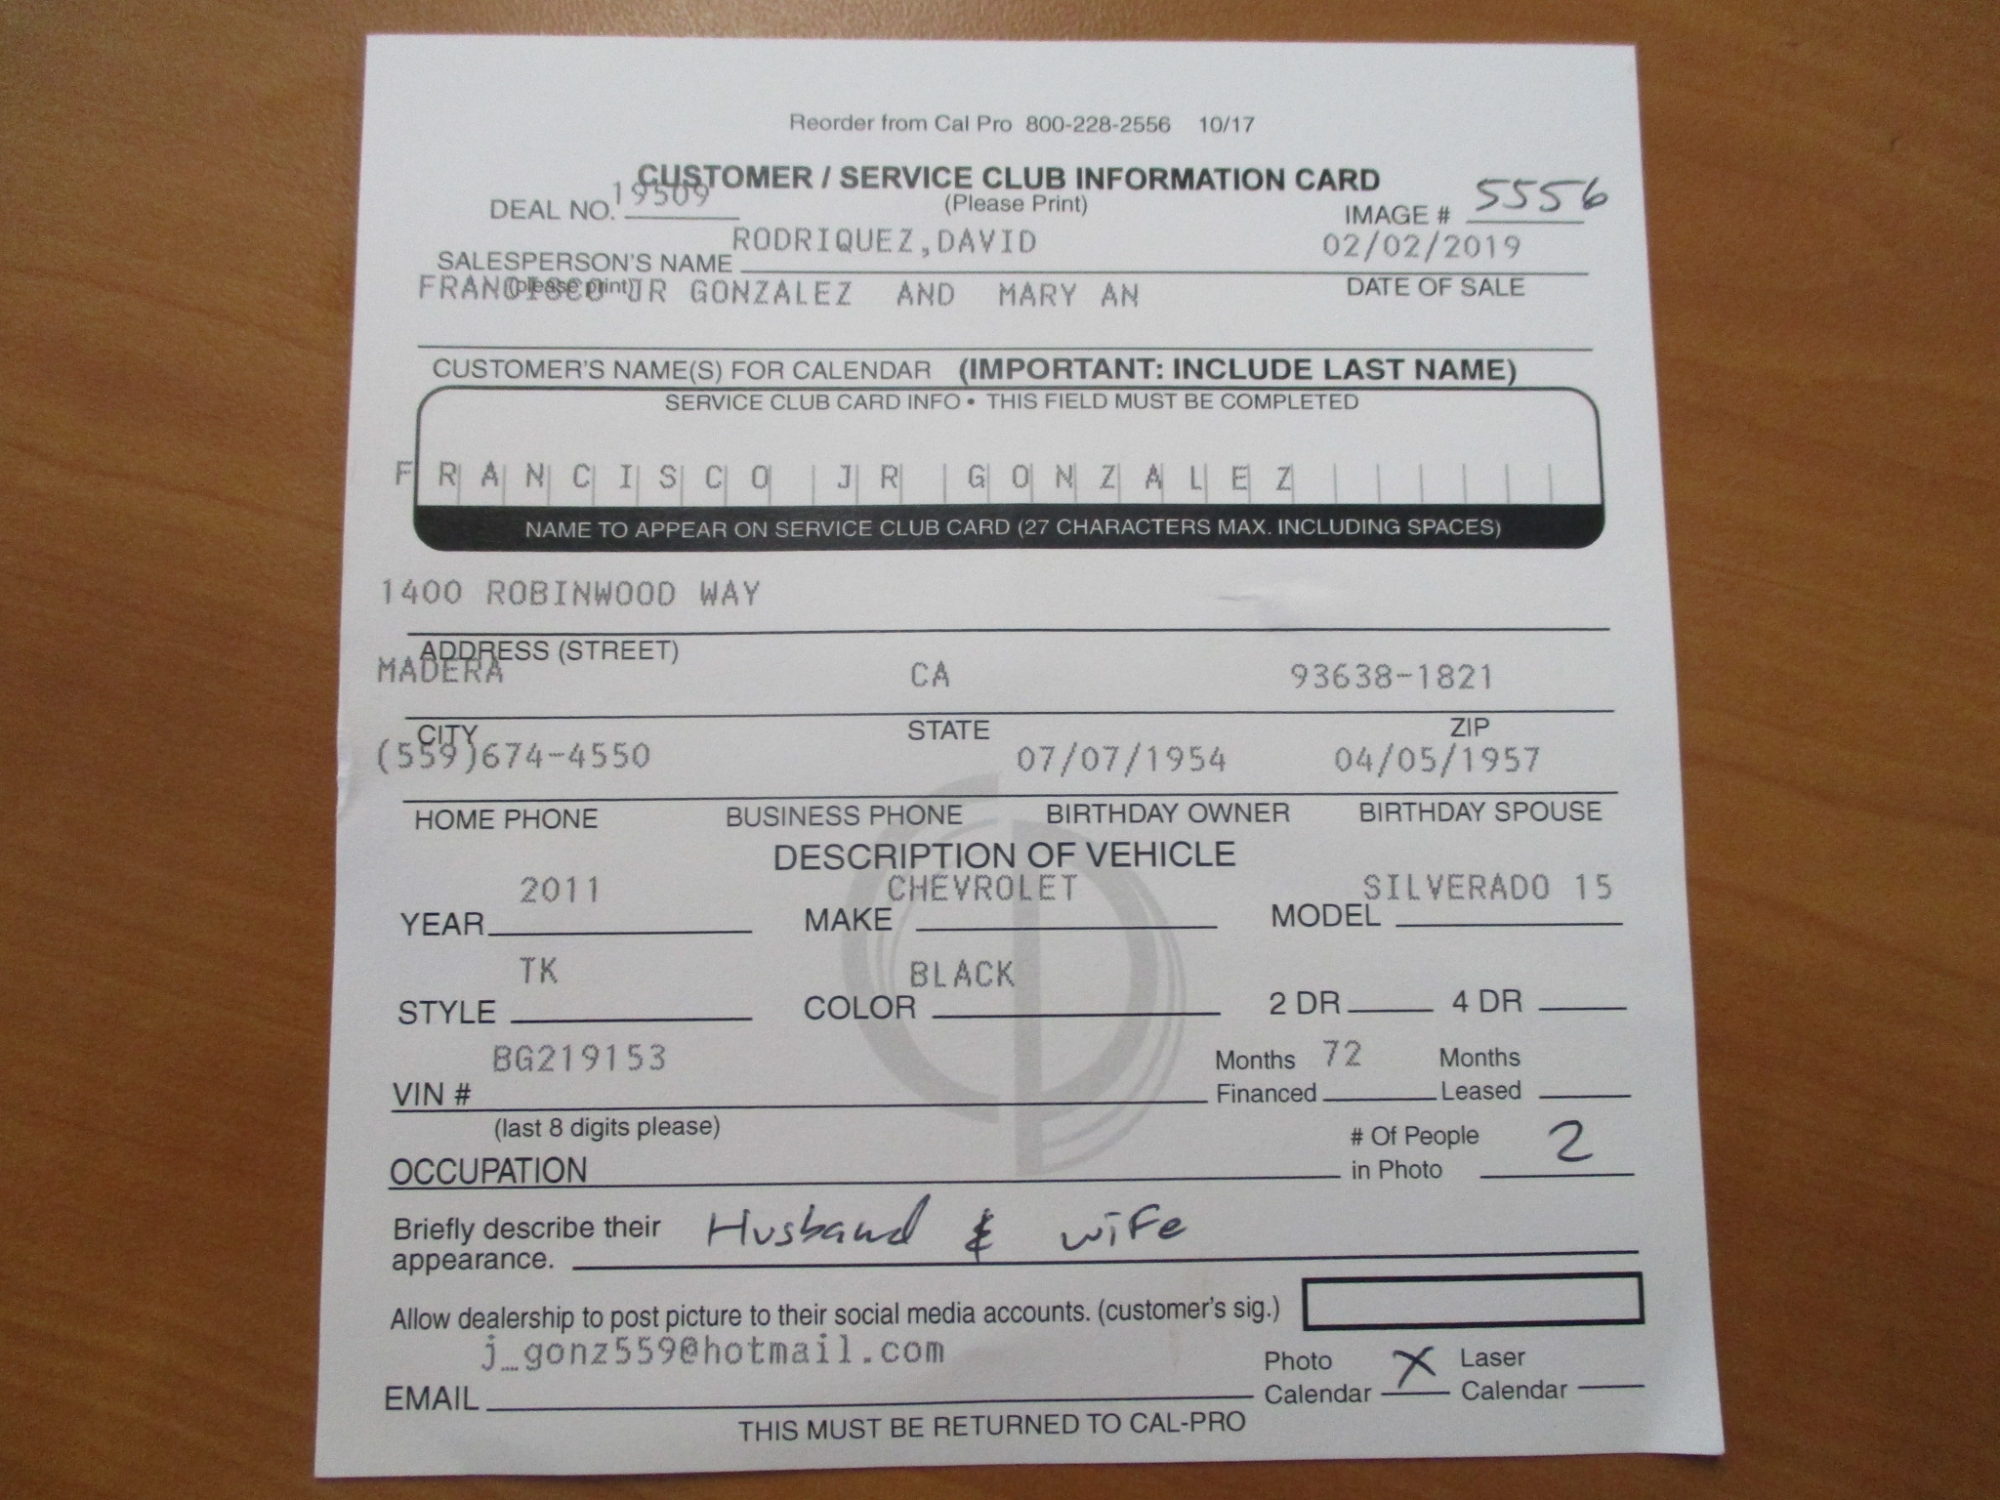 Reorder from Cal Pro 800-228-2556 10/17
CUSTOMER / SERVICE CLUB INFORMATION CARD
(Please Print)
DEAL NO. 19509
IMAGE # 5556
RODRIQUEZ,DAVID 02/02/2019
SALESPERSON'S NAME
(please print)
DATE OF SALE
FRANCISCO JR GONZALEZ AND MARY AN
CUSTOMER'S NAME(S) FOR CALENDAR (IMPORTANT: INCLUDE LAST NAME)
SERVICE CLUB CARD INFO • THIS FIELD MUST BE COMPLETED
FRANCISCO JR GONZALEZ
NAME TO APPEAR ON SERVICE CLUB CARD (27 CHARACTERS MAX. INCLUDING SPACES)
1400 ROBINWOOD WAY
ADDRESS (STREET)
MADERA CA 93638-1821
CITY STATE ZIP
(559)674-4550 07/07/1954 04/05/1957
HOME PHONE BUSINESS PHONE BIRTHDAY OWNER BIRTHDAY SPOUSE
DESCRIPTION OF VEHICLE
2011 CHEVROLET SILVERADO 15
YEAR MAKE MODEL
TK BLACK
STYLE COLOR 2 DR 4 DR
BG219153
VIN #
Months 72 Months
Financed Leased
(last 8 digits please)
# Of People 2
in Photo
OCCUPATION
Briefly describe their Husband & wife
appearance.
Allow dealership to post picture to their social media accounts. (customer's sig.)
j_gonz559@hotmail.com
EMAIL
Photo X Laser
Calendar Calendar
THIS MUST BE RETURNED TO CAL-PRO